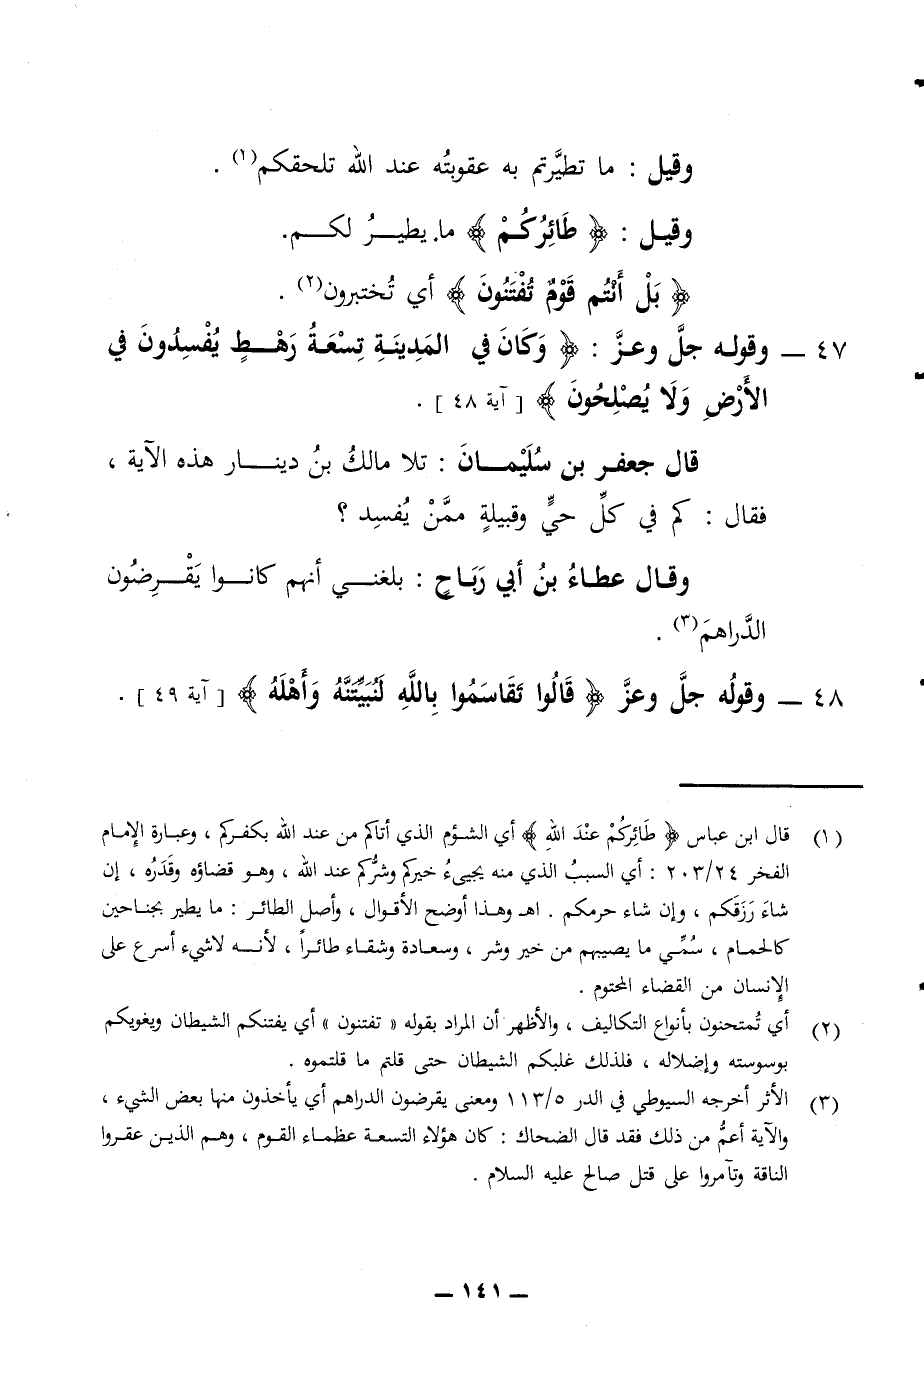 وقيل : ما تطيَّرتم به عقوبتُه عند الله تلحقكم(١) .
وقيل : ﴿ طَائِرُكُمْ ﴾ ما يطيرُ لكم.
﴿ بَلْ أَنْتُم قَوْمٌ تُفْتَنُونَ ﴾ أي تُختبرون(٢) .
٤٧ ــ وقوله جلَّ وعزَّ : ﴿ وَكَانَ في المَدِينَةِ تِسْعَةُ رَهْطٍ يُفْسِدُونَ في
الأَرْضِ وَلَا يُصْلِحُونَ ﴾ [ آية ٤٨ ] .
قال جعفر بن سُلَيْمانَ : تلا مالكُ بنُ دينار هذه الآية ،
فقال : كم في كلِّ حيٍّ وقبيلةٍ ممَّنْ يُفسِد ؟
وقال عطاءُ بنُ أبي رَبَاحٍ : بلغني أنهم كانوا يَقْرِضُون
الدَّراهمَ(٣) .
٤٨ ــ وقولُه جلَّ وعزَّ ﴿ قَالُوا تَقَاسَمُوا بِاللَّهِ لَنُبَيِّتَنَّهُ وَأَهْلَهُ ﴾ [ آية ٤٩ ] .
(١) قال ابن عباس ﴿ طَائِرُكُمْ عنْدَ اللهِ ﴾ أي الشؤم الذي أتاكم من عند الله بكفركم ، وعبارة الإمام
الفخر ٢٠٣/٢٤ : أي السببُ الذي منه يجيءُ خيركم وشرُّكم عند الله ، وهو قضاؤه وقَدَرُه ، إن
شاءَ رَزَقَكم ، وإن شاء حرمكم . اهـ وهذا أوضح الأقوال ، وأصل الطائر : ما يطير بجناحين
كالحمام ، سُمِّي ما يصيبهم من خير وشر ، وسعادة وشقاء طائراً ، لأنه لاشيء أسرع على
الإنسان من القضاء المحتوم .
(٢) أي تُمتحنون بأنواع التكاليف ، والأظهر أن المراد بقوله « تفتنون » أي يفتنكم الشيطان ويغويكم
بوسوسته وإضلاله ، فلذلك غلبكم الشيطان حتى قلتم ما قلتموه .
(٣) الأثر أخرجه السيوطي في الدر ١١٣/٥ ومعنى يقرضون الدراهم أي يأخذون منها بعض الشيء ،
والآية أعمُّ من ذلك فقد قال الضحاك : كان هؤلاء التسعة عظماء القوم ، وهم الذين عقروا
الناقة وتآمروا على قتل صالح عليه السلام .
ــ ١٤١ ــ